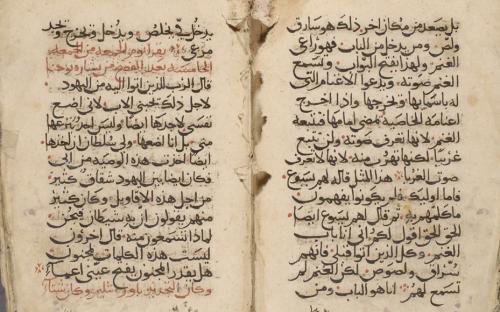 بل يصعد من مكان اخر ذلك هو سارق
ولص ومن يدخل من الباب فهو راعي
الغنم ولهذا يفتح البواب وتسمع
الغنم صوته ويدعوا الاغنام التي
له باسمايها ويخرجها واذا اخرج
اغنامه الخاصيه مضى امامها فتتبعه
الغنم لانها تعرف صوته ولن تتبع
غريبا لكنها تهرب منه لانها لا تعرف
صوت الغربا هذا المثل قاله لهم يسوع
فاما اوليك فلم يكونوا يفهمون
ماكلمهم به ثم قال لهم يسوع ايضا
الحق الحق اقول لكم اني انا باب
الغنم وكل الذين اتوا قبلي فانهم
سراق ولصوص لكن الغنم لم
تسمع لهم انا هو الباب ومن
يدخل في يخلص ويدخل ويخرج ويجد
مرعى يقرا يوم الجمعه من الجمعه
الخامسه بعد الفصح من بشاره يوحنا
قال الرب للذين اتوا اليه من اليهود
لاجل ذلك يحبني الاب لاني اضع
نفسي لاخذها ايضا وليس احد ينزعها
مني بل انا اضعها ولي سلطان ان اخذها
ايضا اخذت هذه الوصيه من ابي
فكان ايضا بين اليهود شقاق كثير
من اجل هذه الاقاويل وكان كثير
منهم يقولون ان به شيطان فمجنون
لماذا تستمعون منه قال اخرون
ليست هذه الكلمات لمجنون
هل يقدر المجنون يفتح عيني اعما
وكان التجديد باورشليم وكان شتا